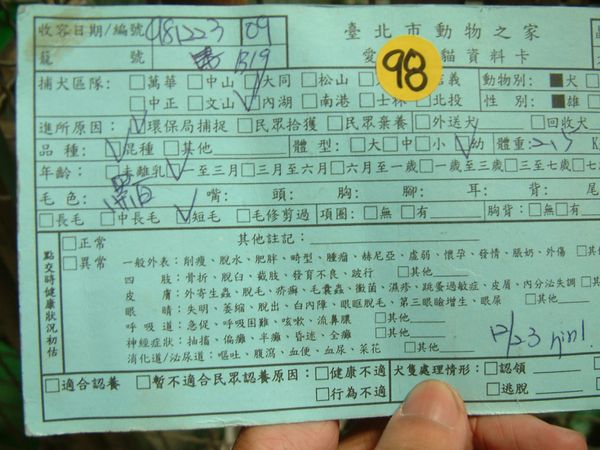 收容日期/編號 981223 09 臺北市動物之家
籠 號 B19 愛 貓資料卡
98
捕犬區隊: □萬華 □中山 □大同 □松山 義 動物別: ■犬
□中正 □文山 □內湖 □南港 □士林 □北投 性 別: ■雄
進所原因: □環保局捕捉 □民眾拾獲 □民眾棄養 □外送犬 □回收犬
品 種: □混種 □其他 體 型: □大□中□小□幼 體重: 2.5 K
年齡: □未離乳 □一至三月 □三至六月 □六月至一歲 □一歲至三歲 □三至七歲 □七
毛 色: 黑白 嘴: 頭: 胸: 腳: 耳: 背: 尾
□長毛 □中長毛 □短毛 □毛修剪過 項圈: □無 □有 胸背: □無□有
點交時健康狀況初估
□正常 其他註記:
□異常 一般外表: 削瘦、脫水、肥胖、畸型、腫瘤、赫尼亞、虛弱、懷孕、發情、脹奶、外傷 □其
四 肢: 骨折、脫臼、截肢、發育不良、跛行 □其他
皮 膚: 外寄生蟲、脫毛、疥癬、毛囊蟲、黴菌、濕疹、跳蚤過敏症、皮屑、內分泌失調
眼 睛: 失明、萎縮、脫出、白內障、眼眶脫毛、第三眼瞼增生、眼屎 □其他
呼 吸 道: 急促、呼吸困難、咳嗽、流鼻膿 □其他
神經症狀: 抽搐、偏癱、半癱、昏迷、全癱 □其他
消化道/泌尿道: 嘔吐、腹瀉、血便、血尿、菜花 □其他
12/23
□適合認養 □暫不適合民眾認養原因: □健康不適 犬隻處理情形: □認領
□行為不適 □逃脫